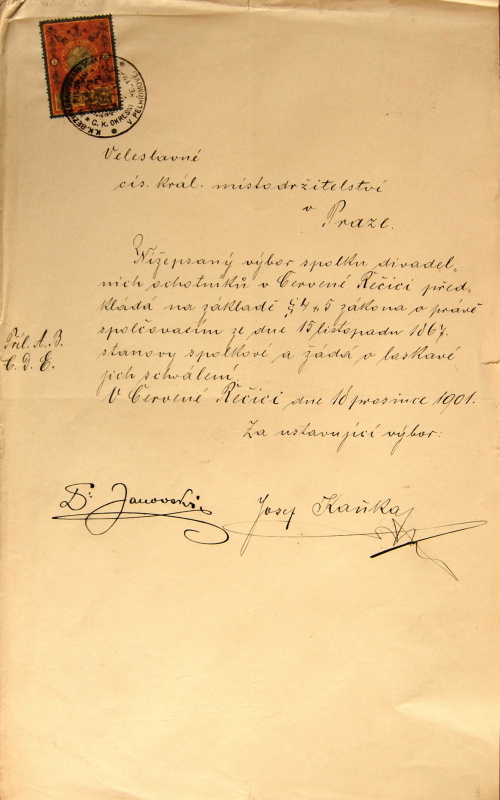 K.K. BEZIRK
* C. K. OKRESNÍ
V PELHŘIMOVĚ *
Veleslavné
cís. král. místodržitelství
v
Praze.
Nížepsaný výbor spolku divadel-
ních ochotníků v Červené Řečici před-
kládá na základě § 4 a 5 zákona o právě
spolčovacím ze dne 15 listopadu 1867.
Příl. A. B.
C. D. E.
stanovy spolkové a žádá o laskavé
jich schválení.
V Červené Řečici dne 18 prosince 1901.
Za ustavující výbor:
Dr. Janovský
Josef Kaňka